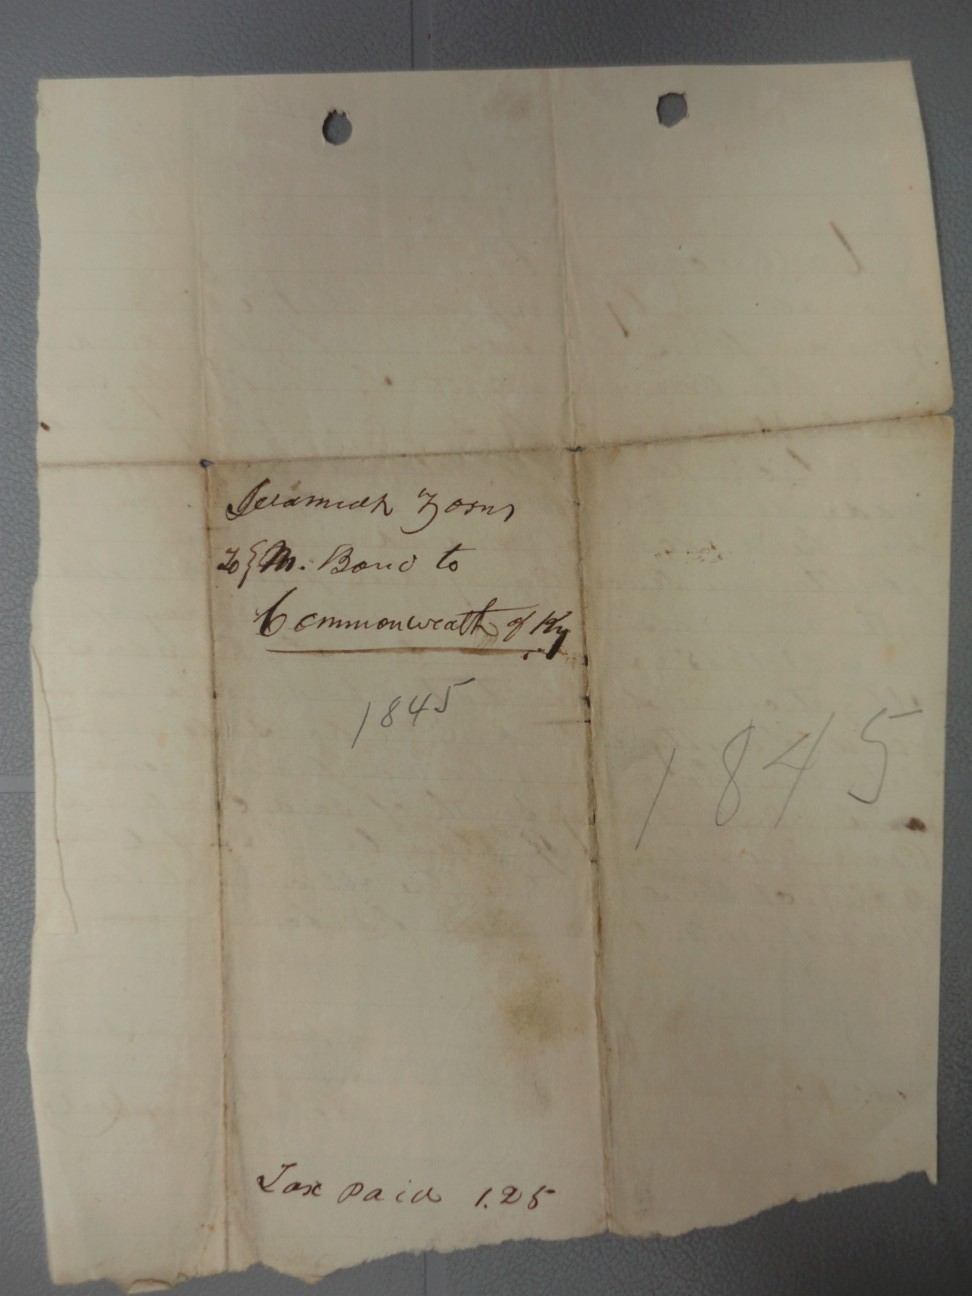 Jeramiah Zorns
To } M. Bond to
Commonweath of Ky
1845
1845
Tax paid 1.25